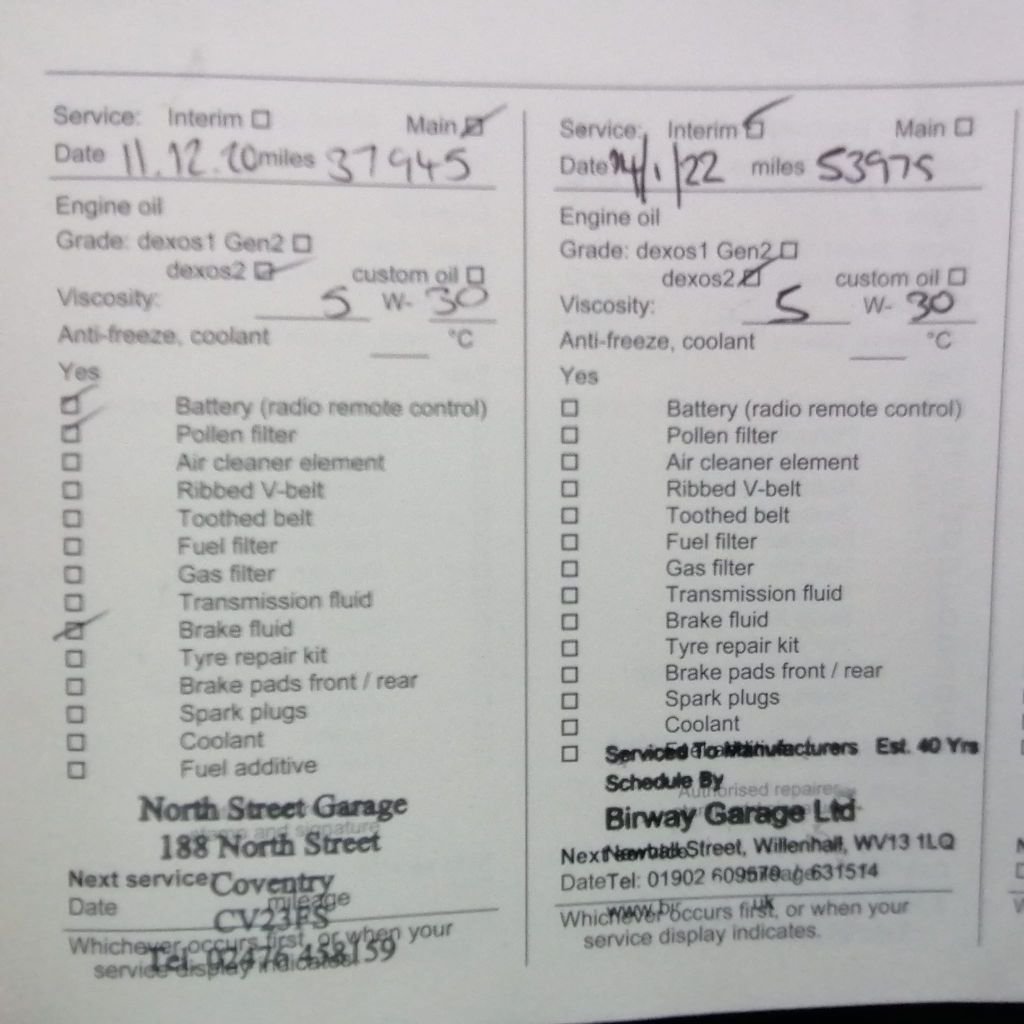 Service: Interim Main
Date 11.12.20 miles 37945
Engine oil
Grade: dexos1 Gen2
dexos2 custom oil
Viscosity: 5 W- 30
Anti-freeze, coolant °C
Yes
Battery (radio remote control)
Pollen filter
Air cleaner element
Ribbed V-belt
Toothed belt
Fuel filter
Gas filter
Transmission fluid
Brake fluid
Tyre repair kit
Brake pads front / rear
Spark plugs
Coolant
Fuel additive
North Street Garage
stamp and signature
188 North Street
Next service Coventry
Date mileage
CV23FS
Whichever occurs first, or when your
service display indicates.
Tel: 02476 458159
Service: Interim Main
Date 14/1/22 miles 53975
Engine oil
Grade: dexos1 Gen2
dexos2 custom oil
Viscosity: 5 W- 30
Anti-freeze, coolant °C
Yes
Battery (radio remote control)
Pollen filter
Air cleaner element
Ribbed V-belt
Toothed belt
Fuel filter
Gas filter
Transmission fluid
Brake fluid
Tyre repair kit
Brake pads front / rear
Spark plugs
Coolant
Serviced To Manufacturers Est. 40 Yrs
Schedule By
Authorised repairer
Birway Garage Ltd
Next Street, Willenhall, WV13 1LQ
Date Tel: 01902 609579 / 631514
Whichever occurs first, or when your
service display indicates.